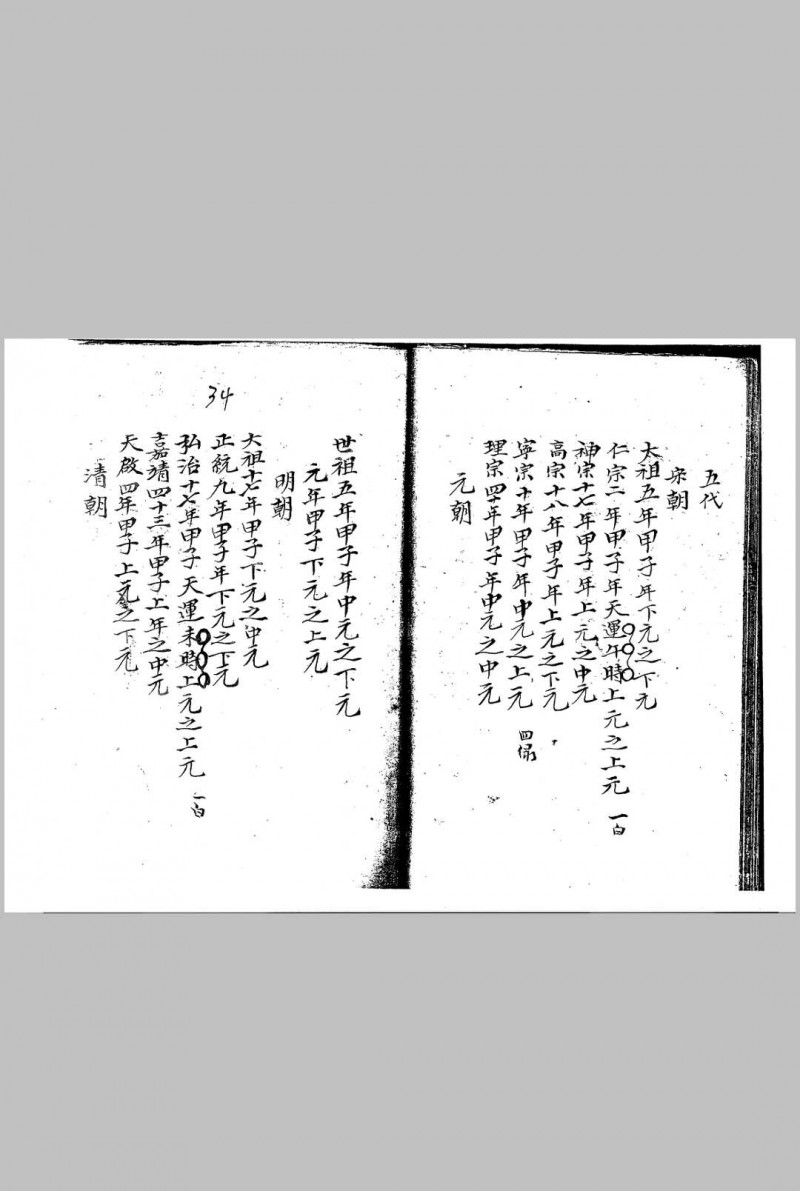 五代
宋朝
太祖五年甲子年下元之下元
仁宗二年甲子年天運午時上元之上元 一白
神宗十七年甲子年上元之中元
高宗十八年甲子年上元之下元
寧宗十年甲子年中元之上元 四綠
理宗四十年甲子年中元之中元
元朝
世祖五年甲子年中元之下元
元年甲子下元之上元
明朝
34
大祖十七年甲子下元之中元
正統九年甲子年下元之下元
弘治十七年甲子天運未時上元之上元 一白
嘉靖四十三年甲子上年之中元
天啟四年甲子上元之下元
清朝